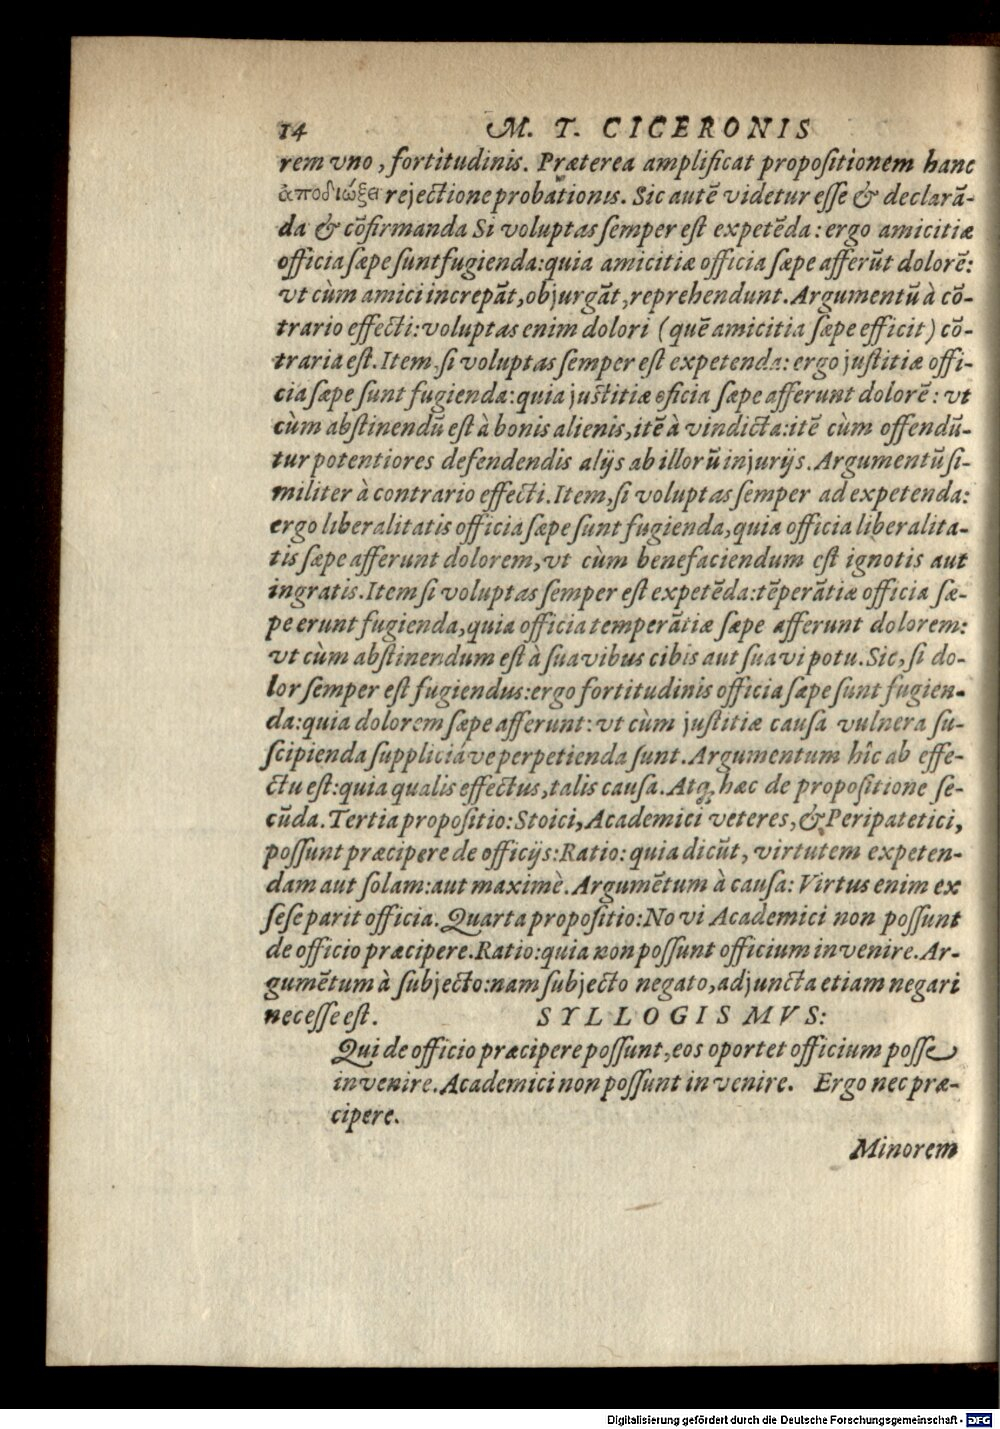 14 M. T. CICERONIS
rem vno, fortitudinis. Præterea amplificat propositionem hanc
ἀποδιώξει rejectione probationis. Sic autē videtur esse & declarā-
da & cōfirmanda Si voluptas semper est expetēda: ergo amicitiæ
officia sæpe sunt fugienda: quia amicitiæ officia sæpe afferūt dolorē:
vt cùm amici increpāt, objurgāt, reprehendunt. Argumentū à cō-
trario effecti: voluptas enim dolori (quē amicitia sæpe efficit) cō-
traria est. Item, si voluptas semper est expetenda: ergo justitiæ offi-
cia sæpe sunt fugienda: quia justitiæ oficia sæpe afferunt dolorē: vt
cùm abstinendū est à bonis alienis, itē à vindicta: itē cùm offendū-
tur potentiores defendendis alijs ab illorū injurijs. Argumentū si-
militer à contrario effecti. Item, si voluptas semper ad expetenda:
ergo liberalitatis officia sæpe sunt fugienda, quia officia liberalita-
tis sæpe afferunt dolorem, vt cùm benefaciendum est ignotis aut
ingratis. Item si voluptas semper est expetēda: tēperātiæ officia sæ-
pe erunt fugienda, quia officia temperātiæ sæpe afferunt dolorem:
vt cùm abstinendum est à suavibus cibis aut suavi potu. Sic, si do-
lor semper est fugiendus: ergo fortitudinis officia sæpe sunt fugien-
da: quia dolorem sæpe afferunt: vt cùm justitiæ causa vulnera su-
scipienda suppliciáve perpetienda sunt. Argumentum hîc ab effe-
ctu est: quia qualis effectus, talis causa. Atq; hæc de propositione se-
cūda. Tertia propositio: Stoici, Academici veteres, & Peripatetici,
possunt præcipere de officijs: Ratio: quia dicūt, virtutem expeten-
dam aut solam: aut maximè. Argumētum à causa: Virtus enim ex
sese parit officia. Quarta propositio: Novi Academici non possunt
de officio præcipere. Ratio: quia non possunt officium invenire. Ar-
gumētum à subjecto: nam subjecto negato, adjuncta etiam negari
necesse est. SYLLOGISMVS:
Qui de officio præcipere possunt, eos oportet officium posse
invenire. Academici non possunt invenire. Ergo nec præ-
cipere.
Minorem
Digitalisierung gefördert durch die Deutsche Forschungsgemeinschaft - DFG